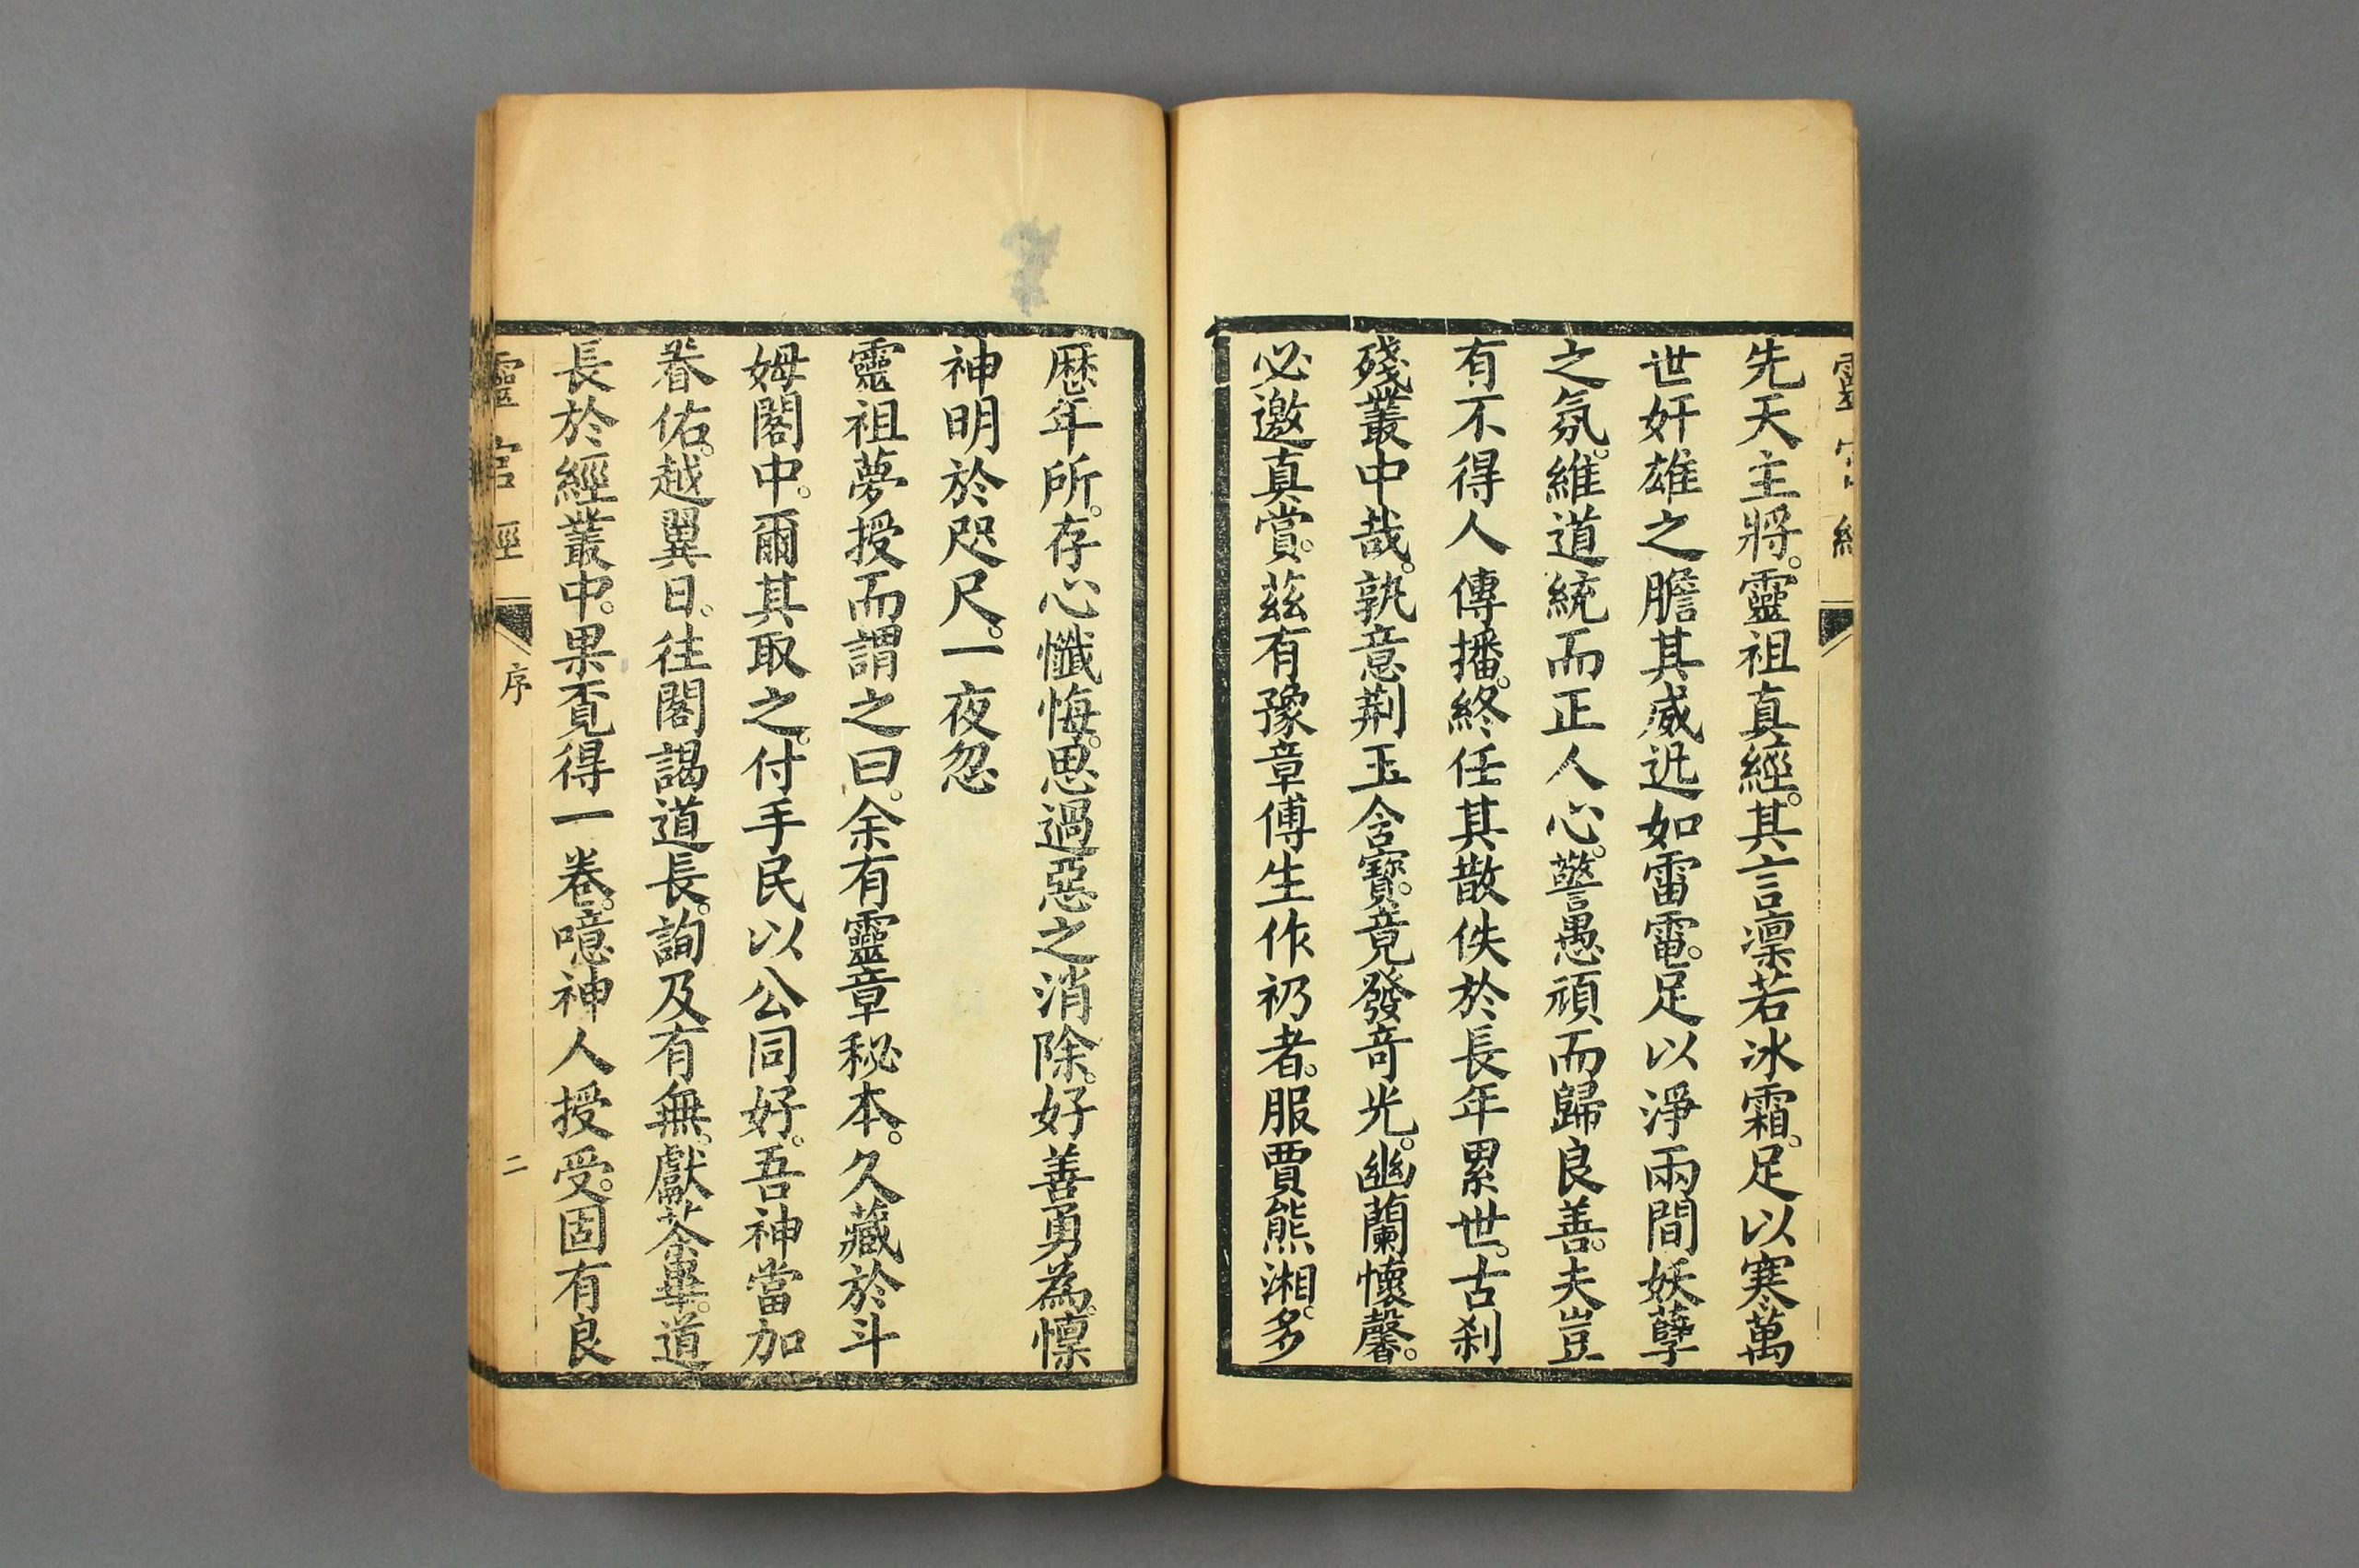 先天主將。靈祖真經。其言凛若冰霜。足以寒萬
世奸雄之膽其威迅如雷電。足以淨兩間妖孽
之氛。維道統而正人心。警愚頑而歸良善。夫豈
有不得人傳播。終任其散佚於長年累世。古刹
殘叢中哉。孰意荆玉含寶。竟發奇光。幽蘭懷馨。
必邀真賞。茲有豫章傅生作礽者。服賈熊湘。多
歴年所。存心懺悔。思過惡之消除。好善勇為。懍
神明於咫尺。一夜忽
靈祖夢授而謂之曰。余有靈章秘本。久藏於斗
姆閣中。爾其取之。付手民以公同好。吾神當加
眷佑。越翼日。往閣謁道長。詢及有無。獻茶畢。道
長於經叢中。果覔得一卷。噫神人授受。固有良
靈官經
序
二